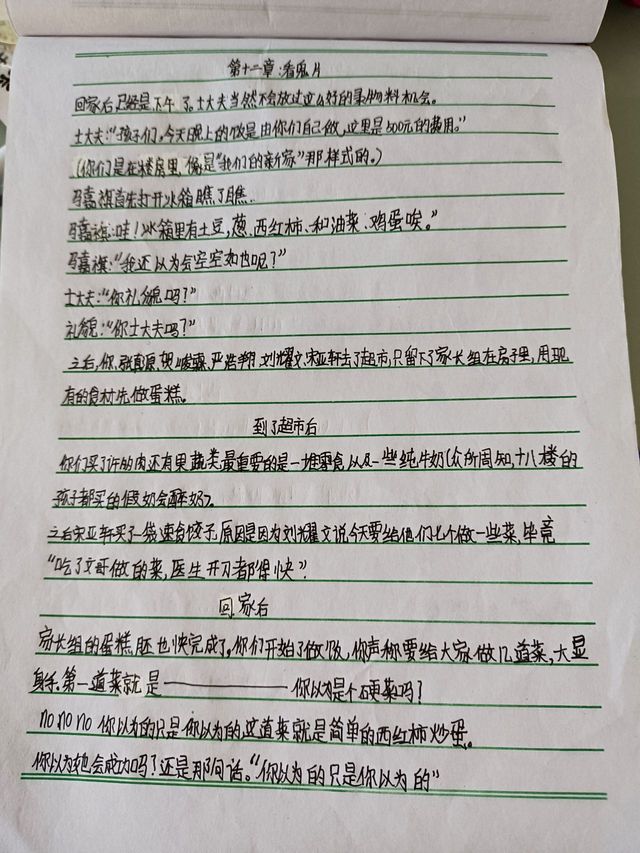 第十二章:看鬼片
回家后已经是下午了。士大夫当然不会放过这么好的录物料机会。
士大夫:"孩子们,今天晚上的饭是由你们自己做,这里是500元的费用。"
(你们是在楼房里,像是"我们的新家"那样式的。)
马嘉祺首先打开冰箱瞧了瞧.
马嘉祺:哇!冰箱里有土豆,葱、西红柿、和油菜、鸡蛋唉。"
马嘉祺:"我还以为会空空如也呢?"
士大夫:"你礼貌吗?"
礼貌:"你士大夫吗?"
之后,你、张真源、贺峻霖、严浩翔、刘耀文、宋亚轩去了超市,只留下了家长组在房子里,用现
有的食材先做蛋糕。
到了超市后
你们买了许的肉还有果蔬类,最重要的是一堆零食以及一些纯牛奶(众所周知,十八楼的
孩子都买的假奶会醉奶).
之后宋亚轩买了一袋速食饺子,原因是因为刘耀文说今天要给他们七个做一些菜,毕竟
"吃了文哥做的菜,医生开刀都得快".
回家后
家长组的蛋糕胚也快完成了。你们开始了做饭,你声称要给大家做几道菜,大显
身手.第一道菜就是————你以为是个硬菜吗?
no no no 你以为的只是你以为的,这道菜就是简单的西红柿炒蛋。
你以为她会成功吗?还是那句话。"你以为的只是你以为的"